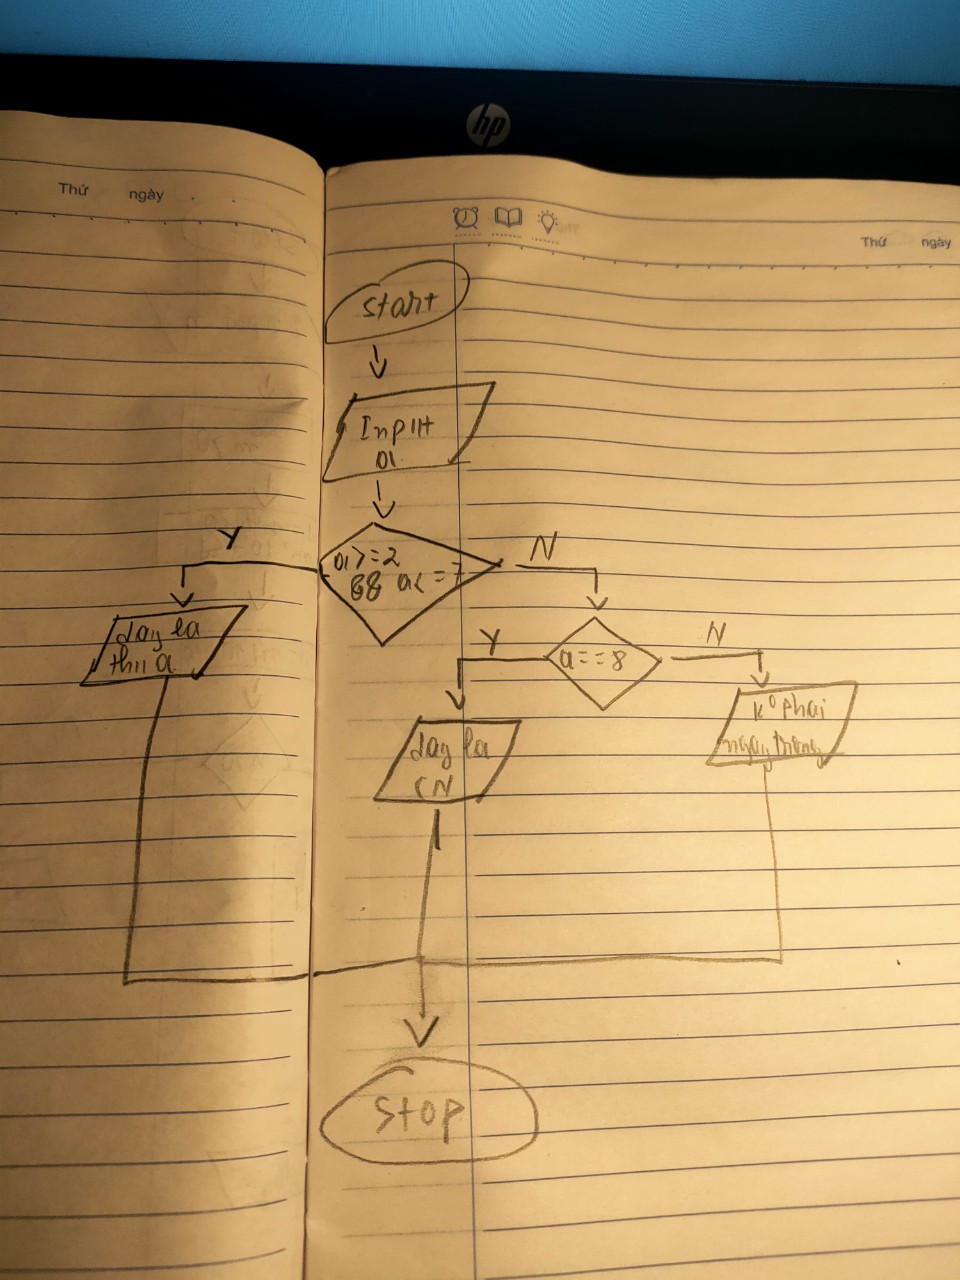 hp
Thứ ngày
Thứ ngày
start
Input
a
a>=2
&& a<=7
Y
N
day la
thu a
a==8
Y
N
day la
CN
k° phai
ngay trong
stop